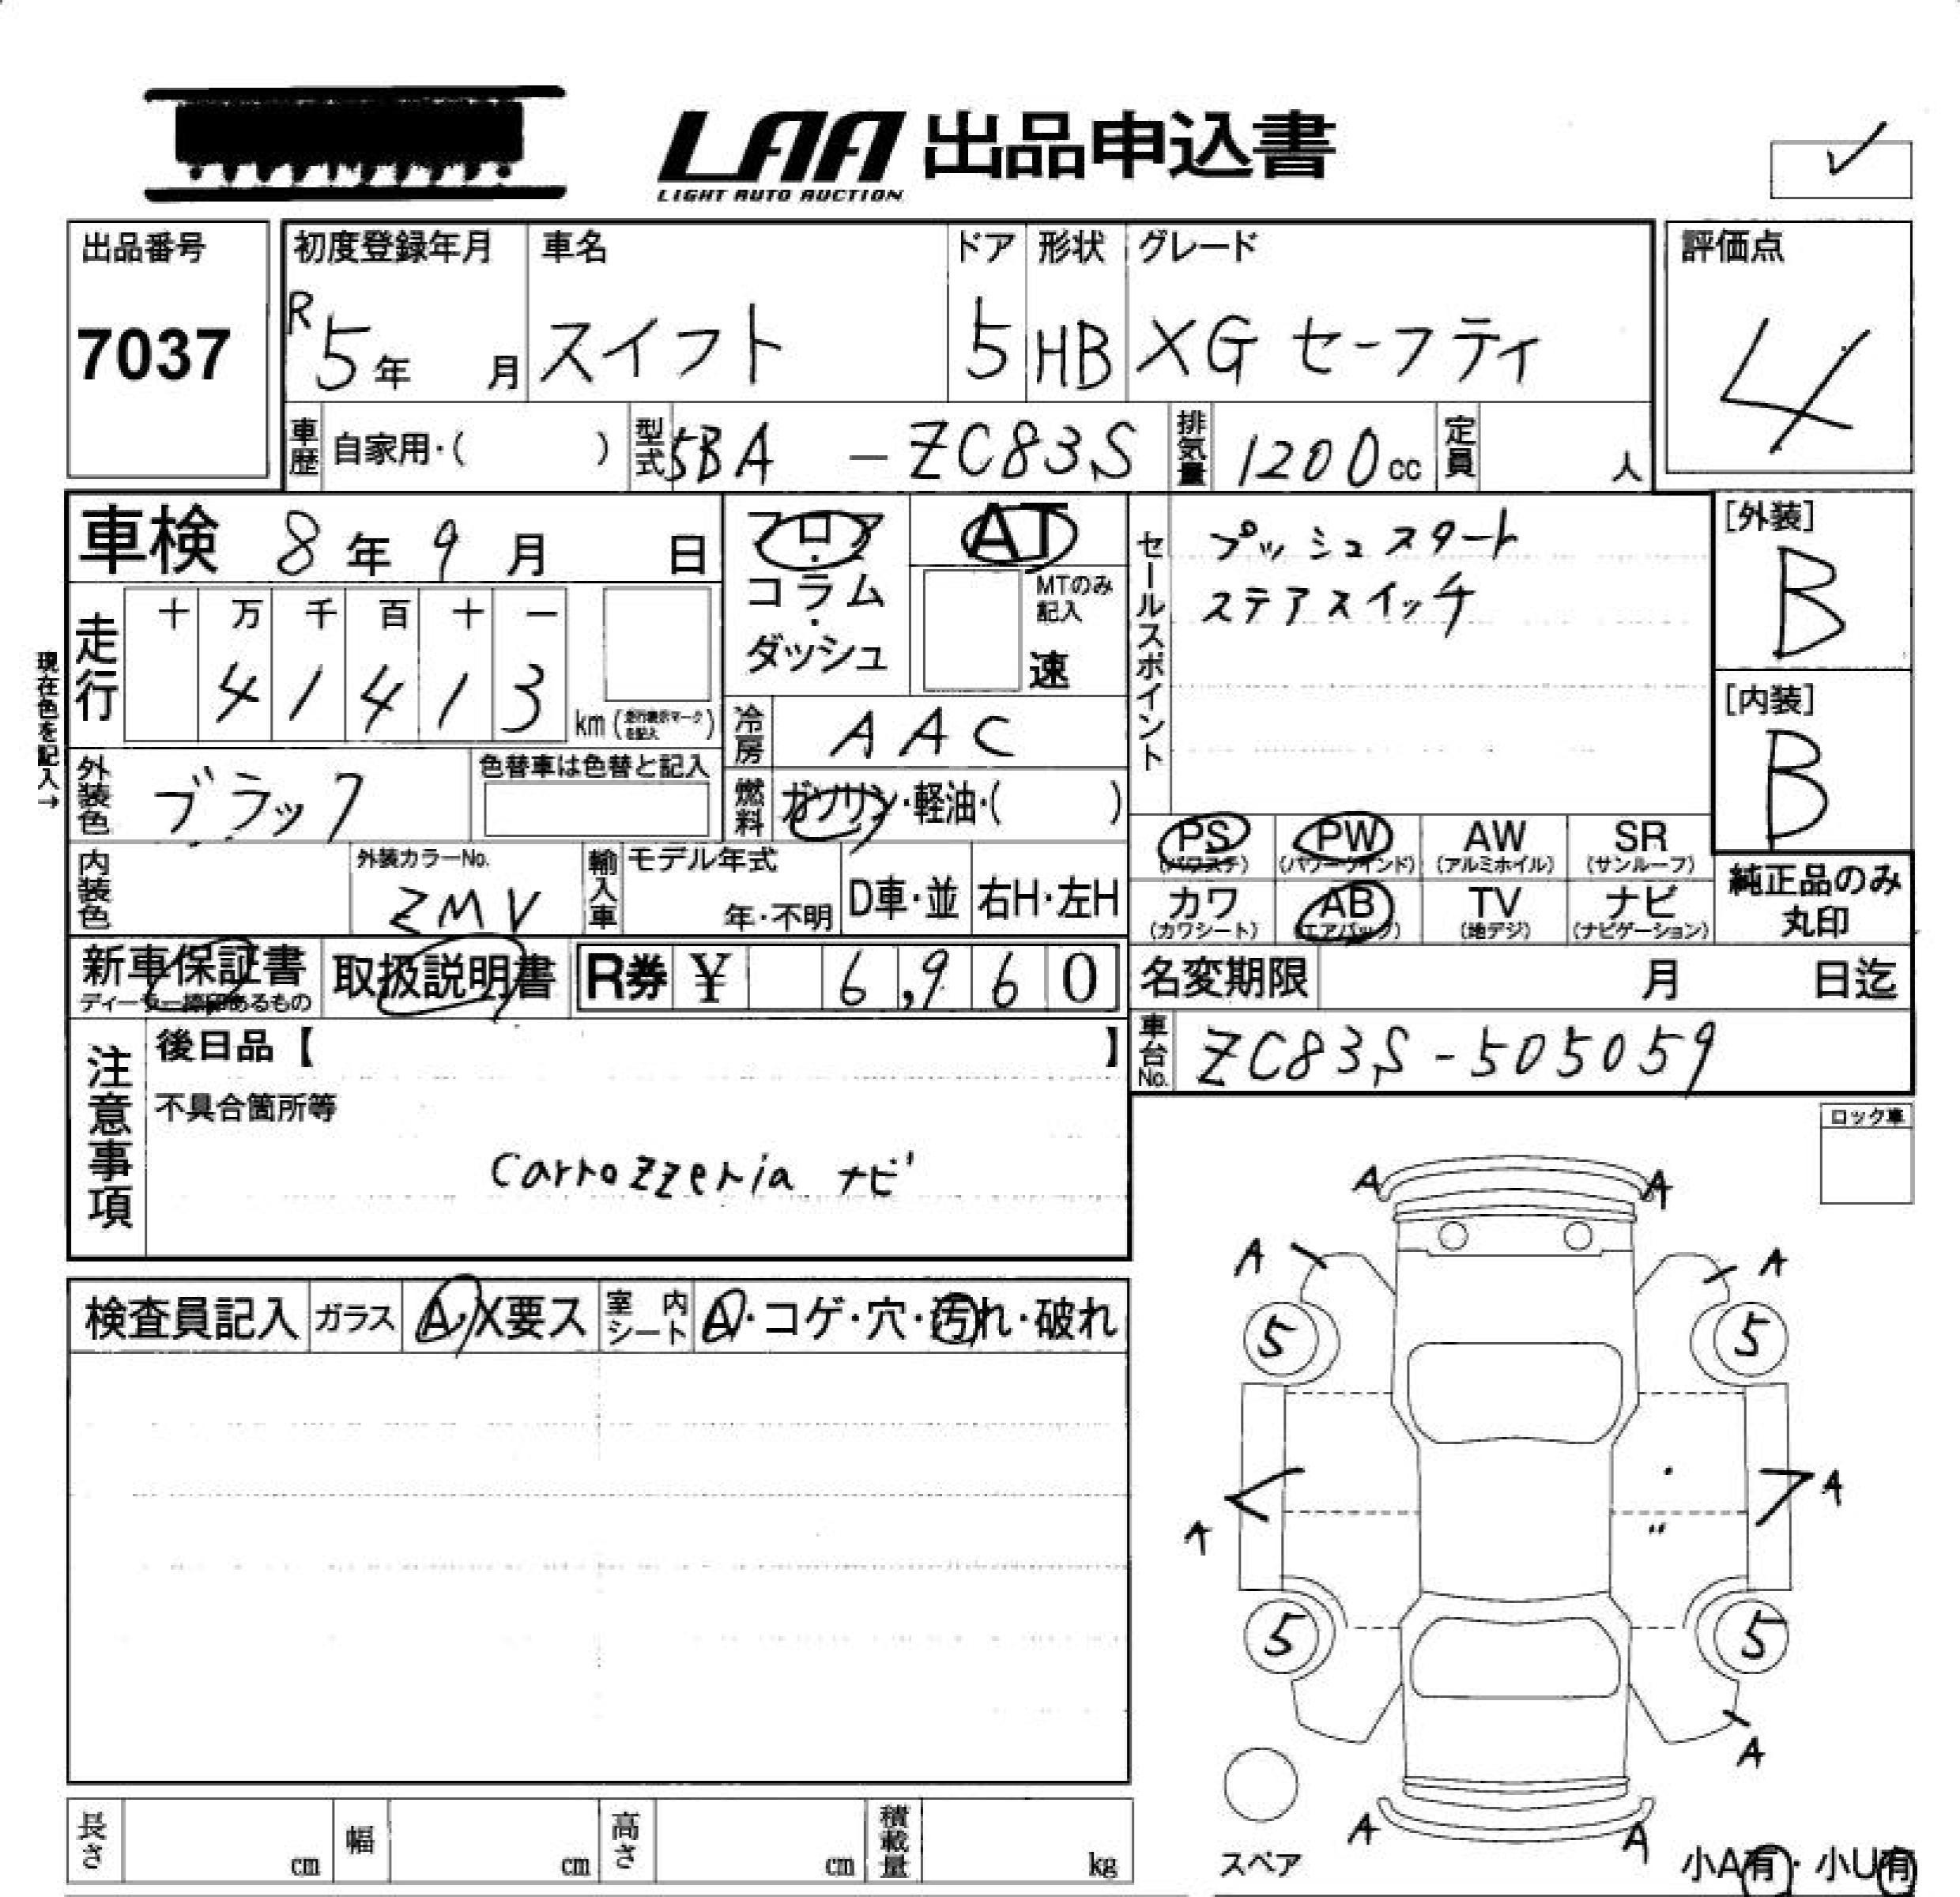 LAA 出品申込書
LIGHT AUTO AUCTION
✓
出品番号 7037
初度登録年月 R5年 月
車名 スイフト
ドア 5
形状 HB
グレード XG セーフティ
評価点 4
車歴 自家用・( )
型式 5BA - ZC83S
排気量 1200cc
定員 人
車検 8年 9月 日
フロア・コラム・ダッシュ
AT
MTのみ記入
速
セールスポイント
プッシュスタート
ステアスイッチ
[外装] B
[内装] B
現在色を記入→
走行 十 万 千 百 十 一
4 1 4 1 3 km (走行表示マークを記入)
冷房 AAC
外装色 ブラック
色替車は色替と記入
燃料 ガソリン・軽油・( )
PS (パワステ) PW (パワーウインド) AW (アルミホイル) SR (サンルーフ)
カワ (カワシート) AB (エアバッグ) TV (地デジ) ナビ (ナビゲーション)
純正品のみ丸印
内装色
外装カラーNo. ZMV
輸入車 モデル年式 年・不明 D車・並 右H・左H
新車保証書
取扱説明書
R券 ¥ 6,960
名変期限 月 日迄
車台No. ZC83S-505059
注意事項
後日品【 】
不具合箇所等
carrozzeria ナビ
ロック車
検査員記入 ガラス A・X要ス 室内シート A・コゲ・穴・汚れ・破れ
A A
A A
5 5
A A
5 5
A
A A
スペア
小A有・小U有
長さ cm 幅 cm 高さ cm 積載量 kg